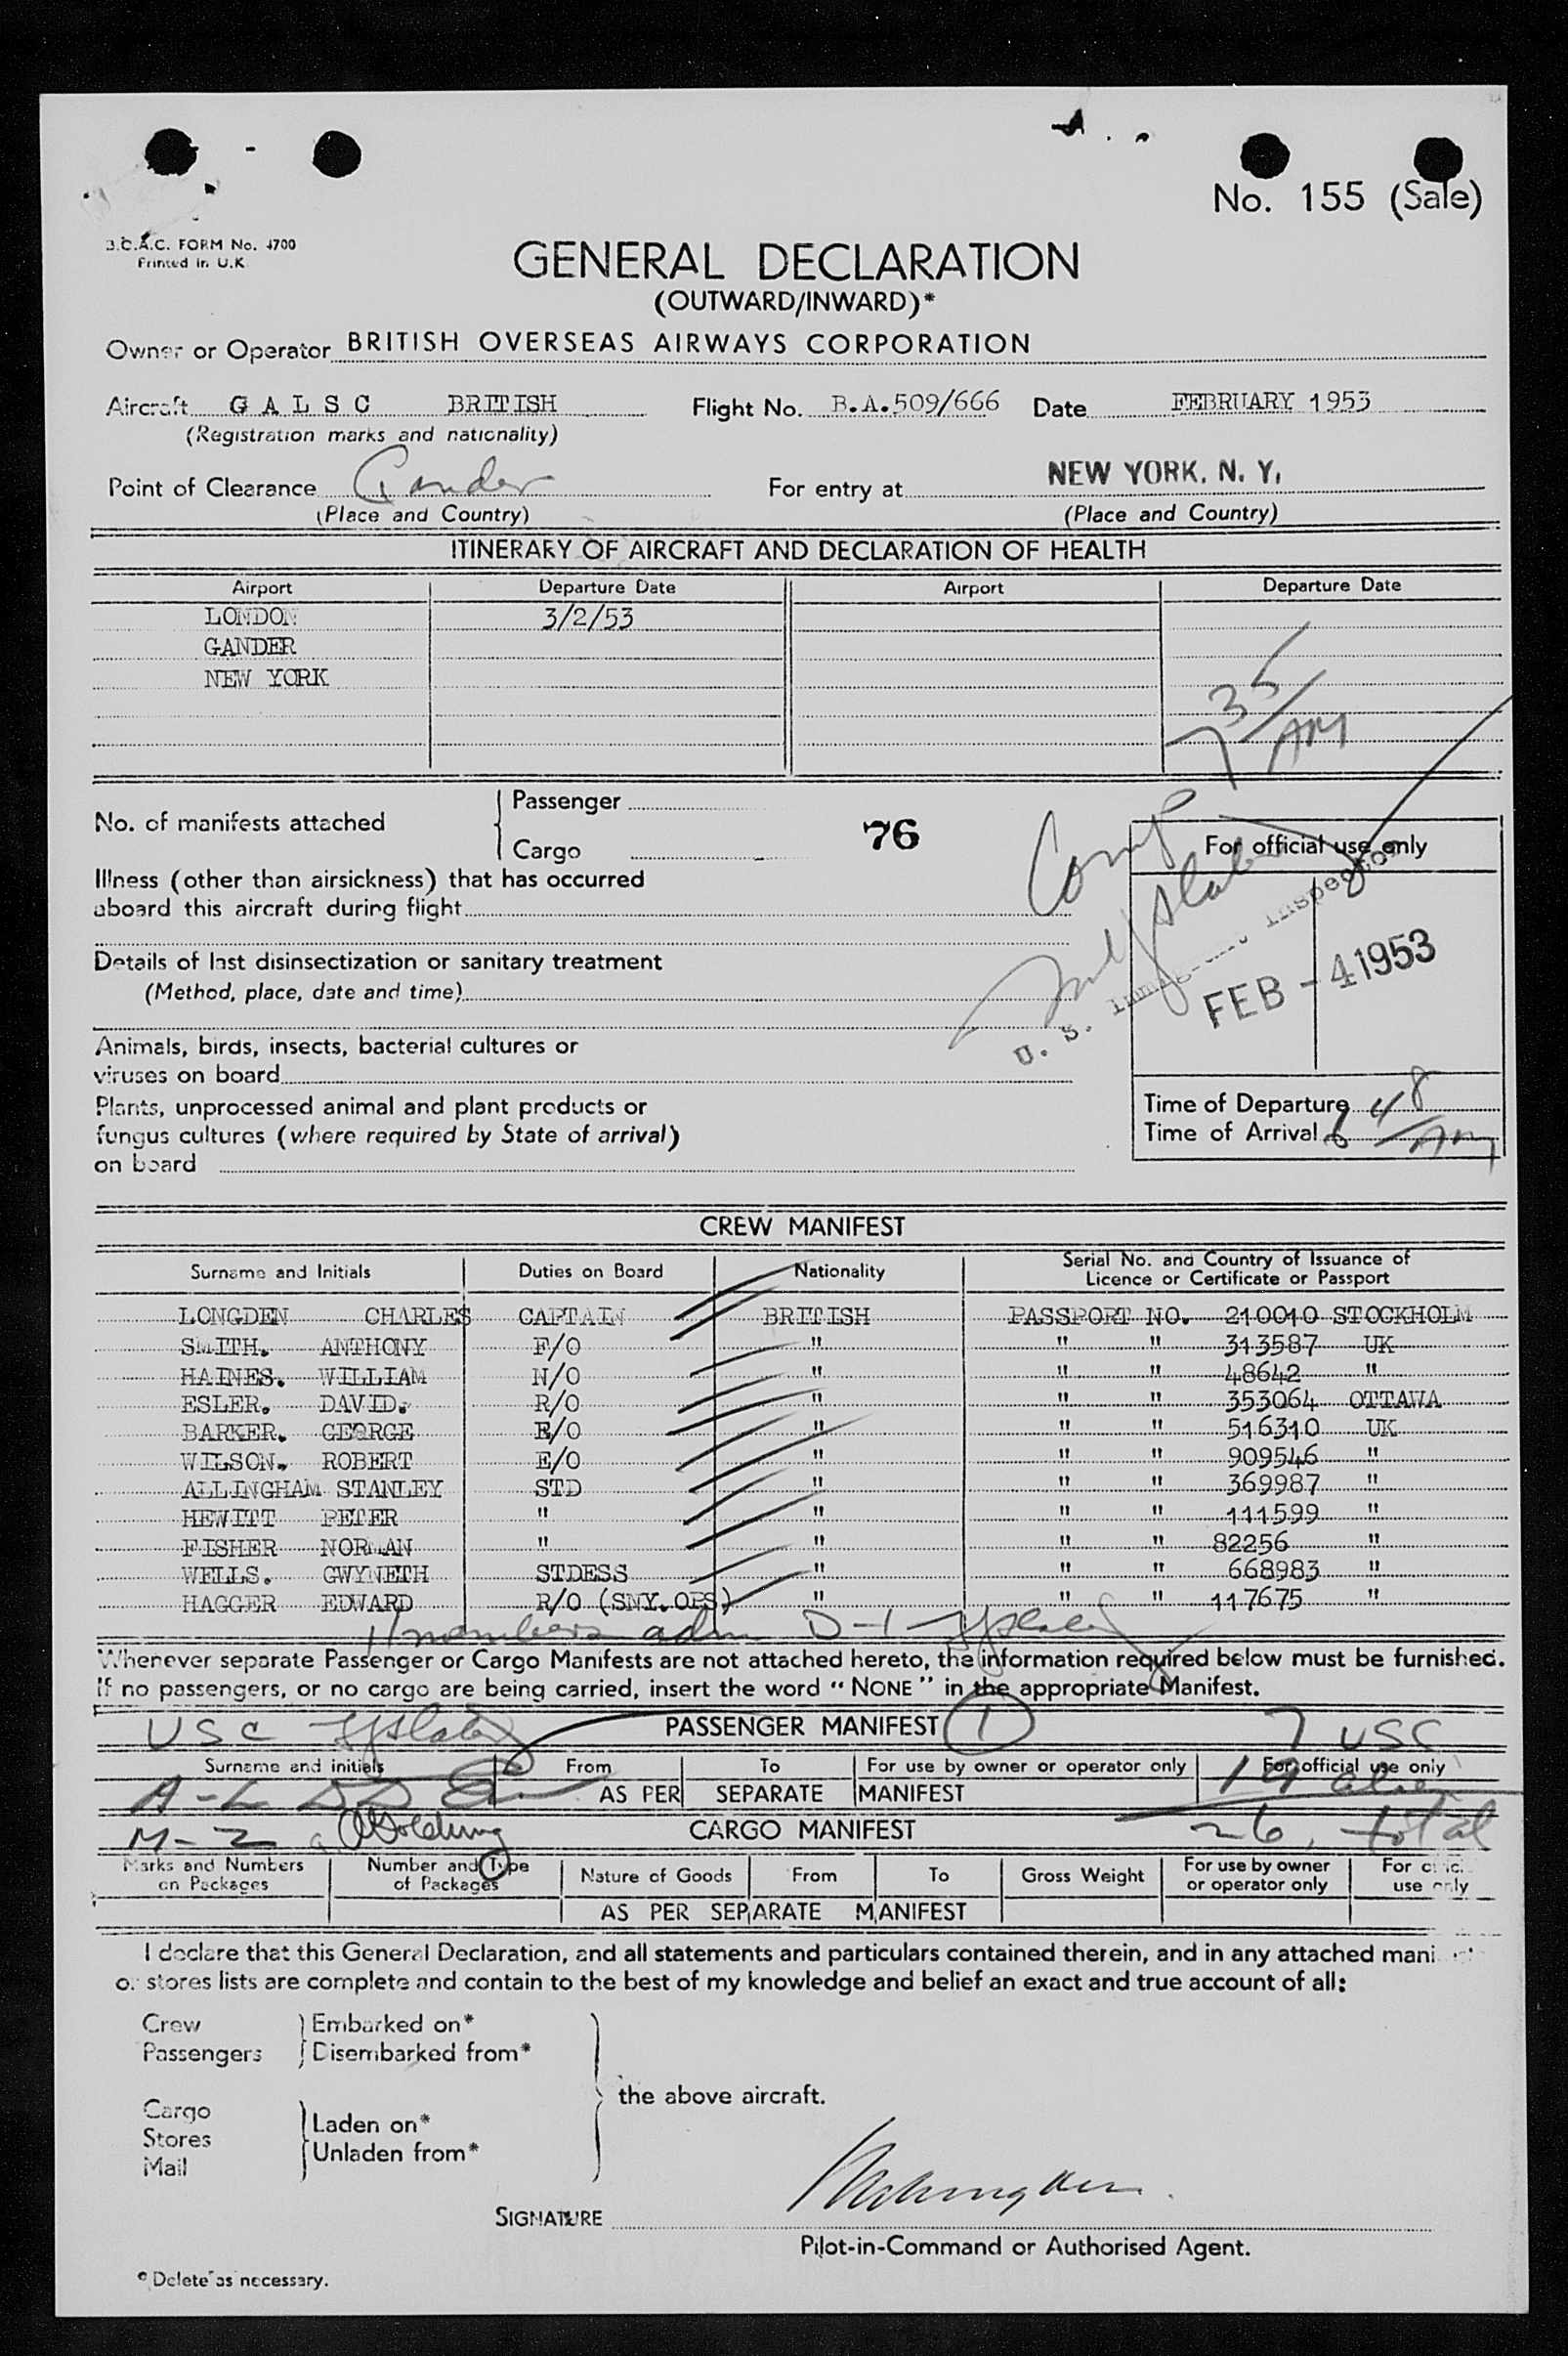 No. 155 (Sale)
B.O.A.C. FORM No. 4700
Printed in U.K.
GENERAL DECLARATION
(OUTWARD/INWARD)*
Owner or Operator BRITISH OVERSEAS AIRWAYS CORPORATION
Aircraft G A L S C BRITISH Flight No. B.A.509/666 Date FEBRUARY 1953
(Registration marks and nationality)
Point of Clearance Gander For entry at NEW YORK, N. Y.
(Place and Country) (Place and Country)
ITINERARY OF AIRCRAFT AND DECLARATION OF HEALTH
Airport Departure Date Airport Departure Date
LONDON 3/2/53
GANDER
NEW YORK
7 35/AM
No. of manifests attached
Passenger
Cargo
76
Comp
For official use only
Illness (other than airsickness) that has occurred
aboard this aircraft during flight
U. S. Immigrant Inspector
Details of last disinsectization or sanitary treatment
(Method, place, date and time)
FEB - 4 1953
Animals, birds, insects, bacterial cultures or
viruses on board
Plants, unprocessed animal and plant products or
fungus cultures (where required by State of arrival)
on board
Time of Departure
Time of Arrival 6 48/AM
CREW MANIFEST
Surname and Initials Duties on Board Nationality Serial No. and Country of Issuance of Licence or Certificate or Passport
LONGDEN CHARLES CAPTAIN BRITISH PASSPORT NO. 210010 STOCKHOLM
SMITH. ANTHONY F/O " " " 313587 UK
HAINES. WILLIAM N/O " " " 48642 "
ESLER. DAVID. R/O " " " 353064 OTTAWA
BARKER. GEORGE E/O " " " 516310 UK
WILSON. ROBERT E/O " " " 909546 "
ALLINGHAM STANLEY STD " " " 369987 "
HEWITT PETER " " " " 111599 "
FISHER NORMAN " " " " 82256 "
WELLS. GWYNETH STDESS " " " 668983 "
HAGGER EDWARD R/O (SNY.OPS) " " " 117675 "
11 members adm D-1
Whenever separate Passenger or Cargo Manifests are not attached hereto, the information required below must be furnished.
If no passengers, or no cargo are being carried, insert the word "NONE" in the appropriate Manifest.
USC PASSENGER MANIFEST 1 7 USC
Surname and initials From To For use by owner or operator only For official use only
A-L AS PER SEPARATE MANIFEST 19 alien
M-Z CARGO MANIFEST 26, total
Marks and Numbers on Packages Number and Type of Packages Nature of Goods From To Gross Weight For use by owner or operator only For offic. use only
AS PER SEPARATE MANIFEST
I declare that this General Declaration, and all statements and particulars contained therein, and in any attached mani
or stores lists are complete and contain to the best of my knowledge and belief an exact and true account of all:
Crew Embarked on*
Passengers Disembarked from*
the above aircraft.
Cargo
Laden on*
Stores
Unladen from*
Mail
SIGNATURE
Pilot-in-Command or Authorised Agent.
* Delete as necessary.